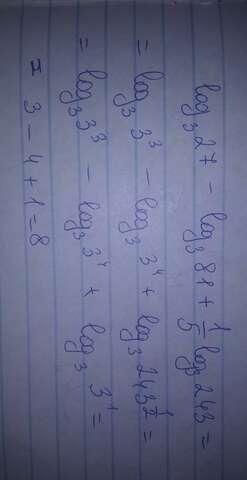 log₃27 - log₃81 + 1/5 log₃243 =
= log₃3³ - log₃3⁴ + log₃243^1/2 =
= log₃3³ - log₃3⁴ + log₃3¹ =
= 3 - 4 + 1 = 8